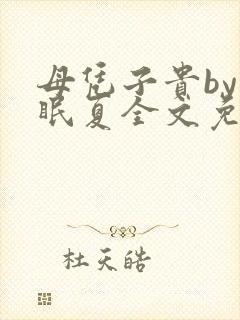 母凭子贵by
眠夏全文免
杜天皓